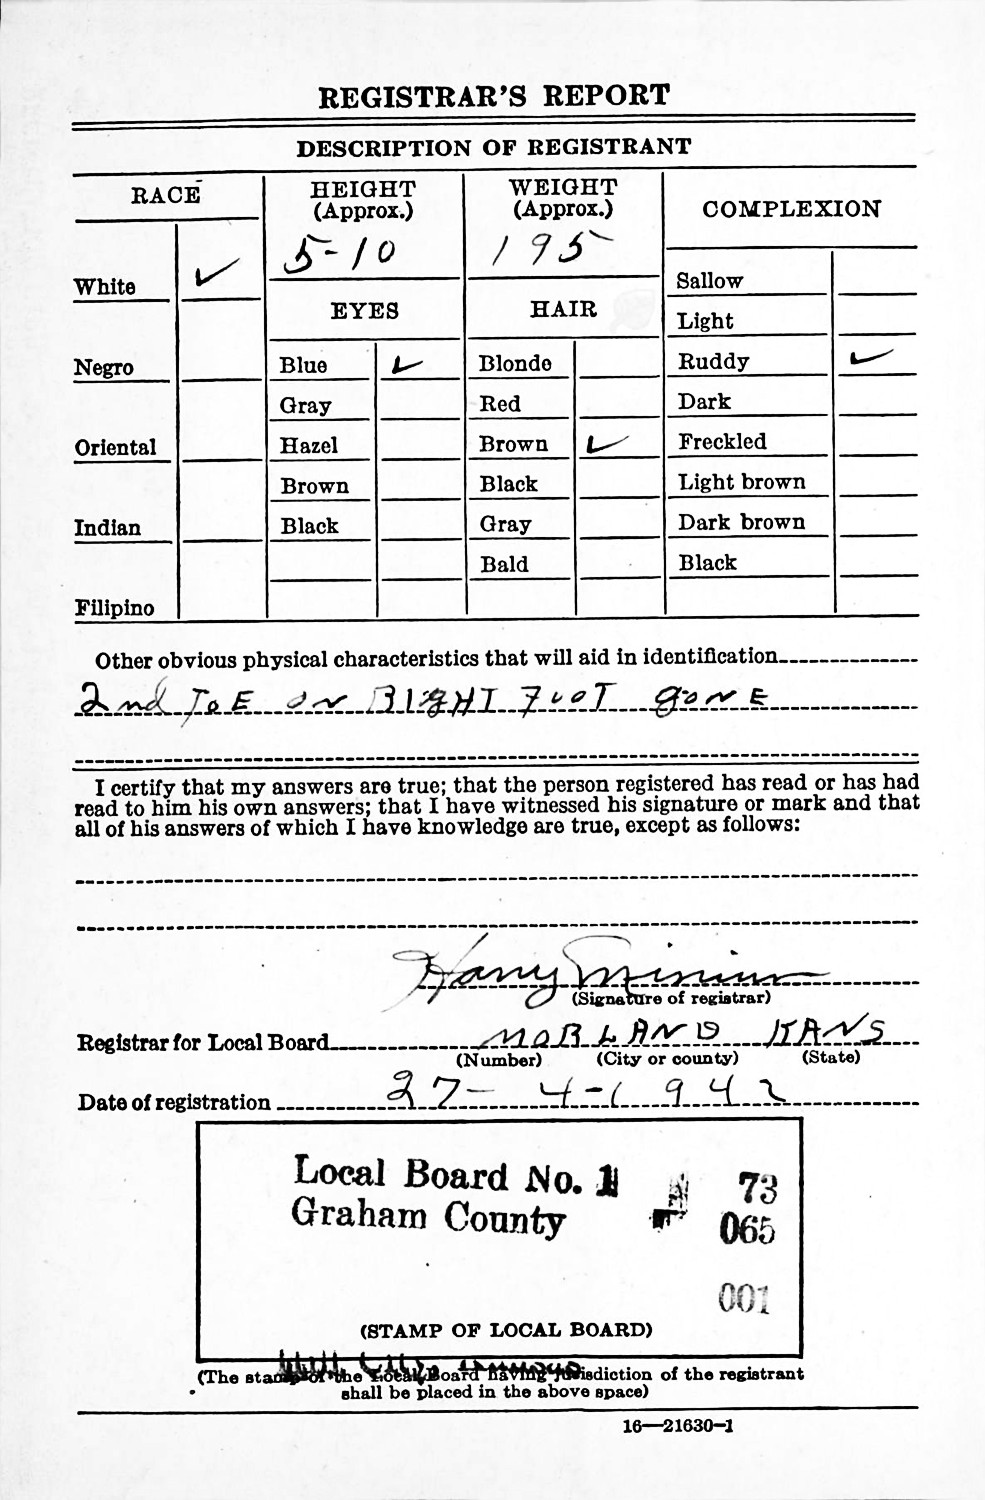 REGISTRAR'S REPORT
DESCRIPTION OF REGISTRANT
RACE
HEIGHT
(Approx.)
WEIGHT
(Approx.)
COMPLEXION
5-10
195
White ✓
EYES
HAIR
Sallow
Light
Negro
Blue ✓
Blonde
Ruddy ✓
Gray
Red
Dark
Oriental
Hazel
Brown ✓
Freckled
Brown
Black
Light brown
Indian
Black
Gray
Dark brown
Bald
Black
Filipino
Other obvious physical characteristics that will aid in identification
2nd ToE on RIgHT FooT goNE
I certify that my answers are true; that the person registered has read or has had
read to him his own answers; that I have witnessed his signature or mark and that
all of his answers of which I have knowledge are true, except as follows:
Harry Minium
(Signature of registrar)
Registrar for Local Board MORLAND KANS
(Number) (City or county) (State)
Date of registration 27-4-1942
Local Board No. 1 73
Graham County 065
001
(STAMP OF LOCAL BOARD)
(The stamp of the Local Board having jurisdiction of the registrant
shall be placed in the above space)
16—21630-1